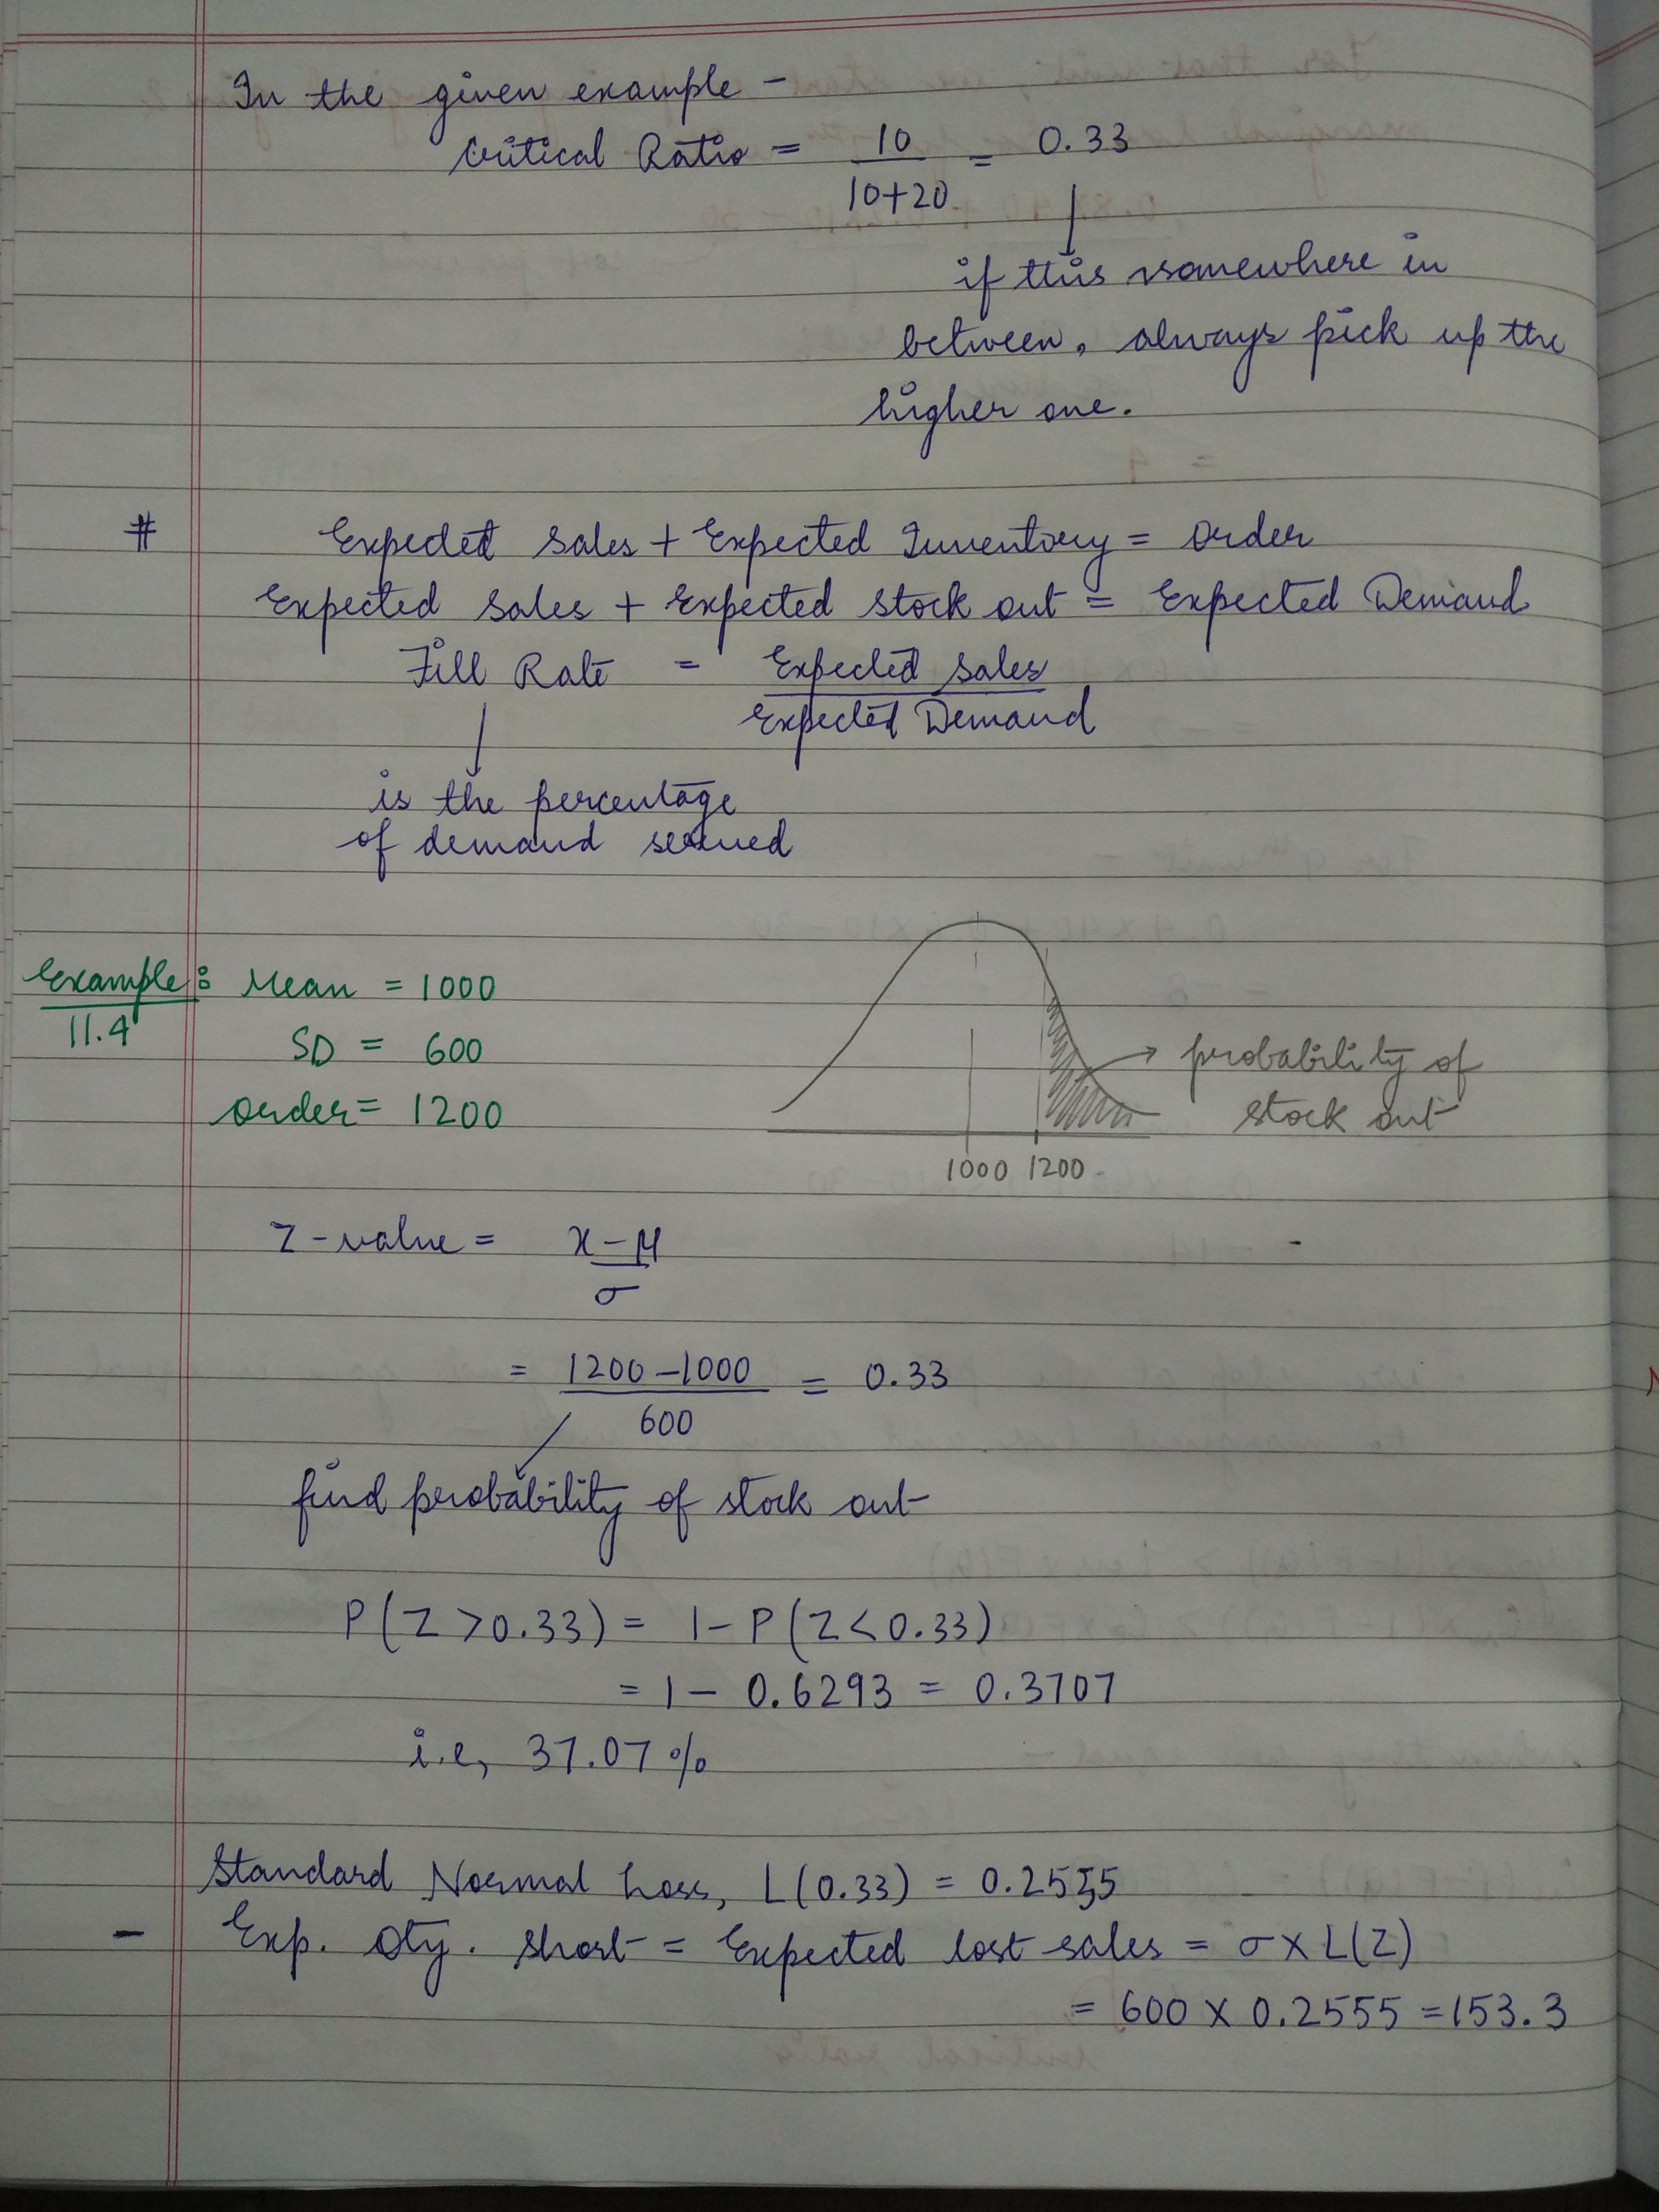 In the given example -
Critical Ratio = 10 / 10+20 = 0.33
if this somewhere in
between, always pick up the
higher one.
# Expected sales + Expected Inventory = order
Expected sales + Expected stock out = Expected Demand
Fill Rate = Expected sales / Expected Demand
is the percentage
of demand served
Example: 11.4 Mean = 1000
SD = 600
order = 1200
probability of
stock out
1000 1200
Z-value = x-μ / σ
= 1200-1000 / 600 = 0.33
find probability of stock out
P(Z>0.33) = 1-P(Z<0.33)
= 1 - 0.6293 = 0.3707
i.e, 37.07%
Standard Normal Loss, L(0.33) = 0.2555
- Exp. Qty. short = Expected lost sales = σ x L(Z)
= 600 x 0.2555 = 153.3